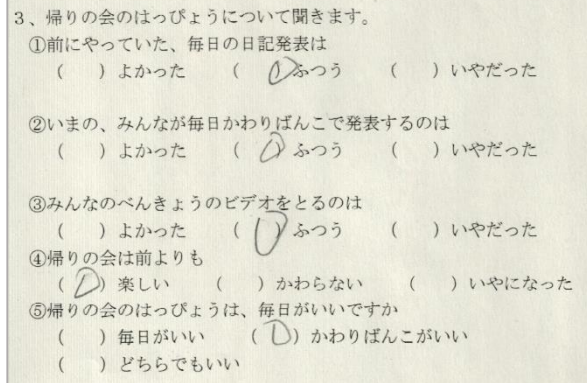 3、帰りの会のはっぴょうについて聞きます。
①前にやっていた、毎日の日記発表は
(　) よかった　(　) ふつう　(　) いやだった
②いまの、みんなが毎日かわりばんこで発表するのは
(　) よかった　(　) ふつう　(　) いやだった
③みんなのべんきょうのビデオをとるのは
(　) よかった　(　) ふつう　(　) いやだった
④帰りの会は前よりも
(　) 楽しい　(　) かわらない　(　) いやになった
⑤帰りの会のはっぴょうは、毎日がいいですか
(　) 毎日がいい　(　) かわりばんこがいい
(　) どちらでもいい